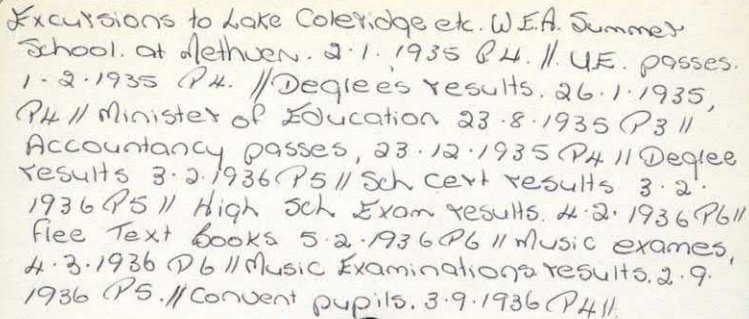 Excursions to Lake Coleridge etc. W.E.A. Summer
School. at Methven. 2.1.1935 P4. //. U.E. passes.
1.2.1935 P4. // Degree's results. 26.1.1935,
P4 // Minister of Education 23.8.1935 P3 //
Accountancy passes, 23.12.1935 P4 // Degree
results 3.2.1936 P5 // Sch Cert results 3.2.
1936 P5 // High Sch Exam results. 4.2.1936 P6 //
Free Text Books 5.2.1936 P6 // Music exames,
4.3.1936 P6 // Music Examinations results. 2.9.
1936 P5. // Convent pupils. 3.9.1936 P4 //.